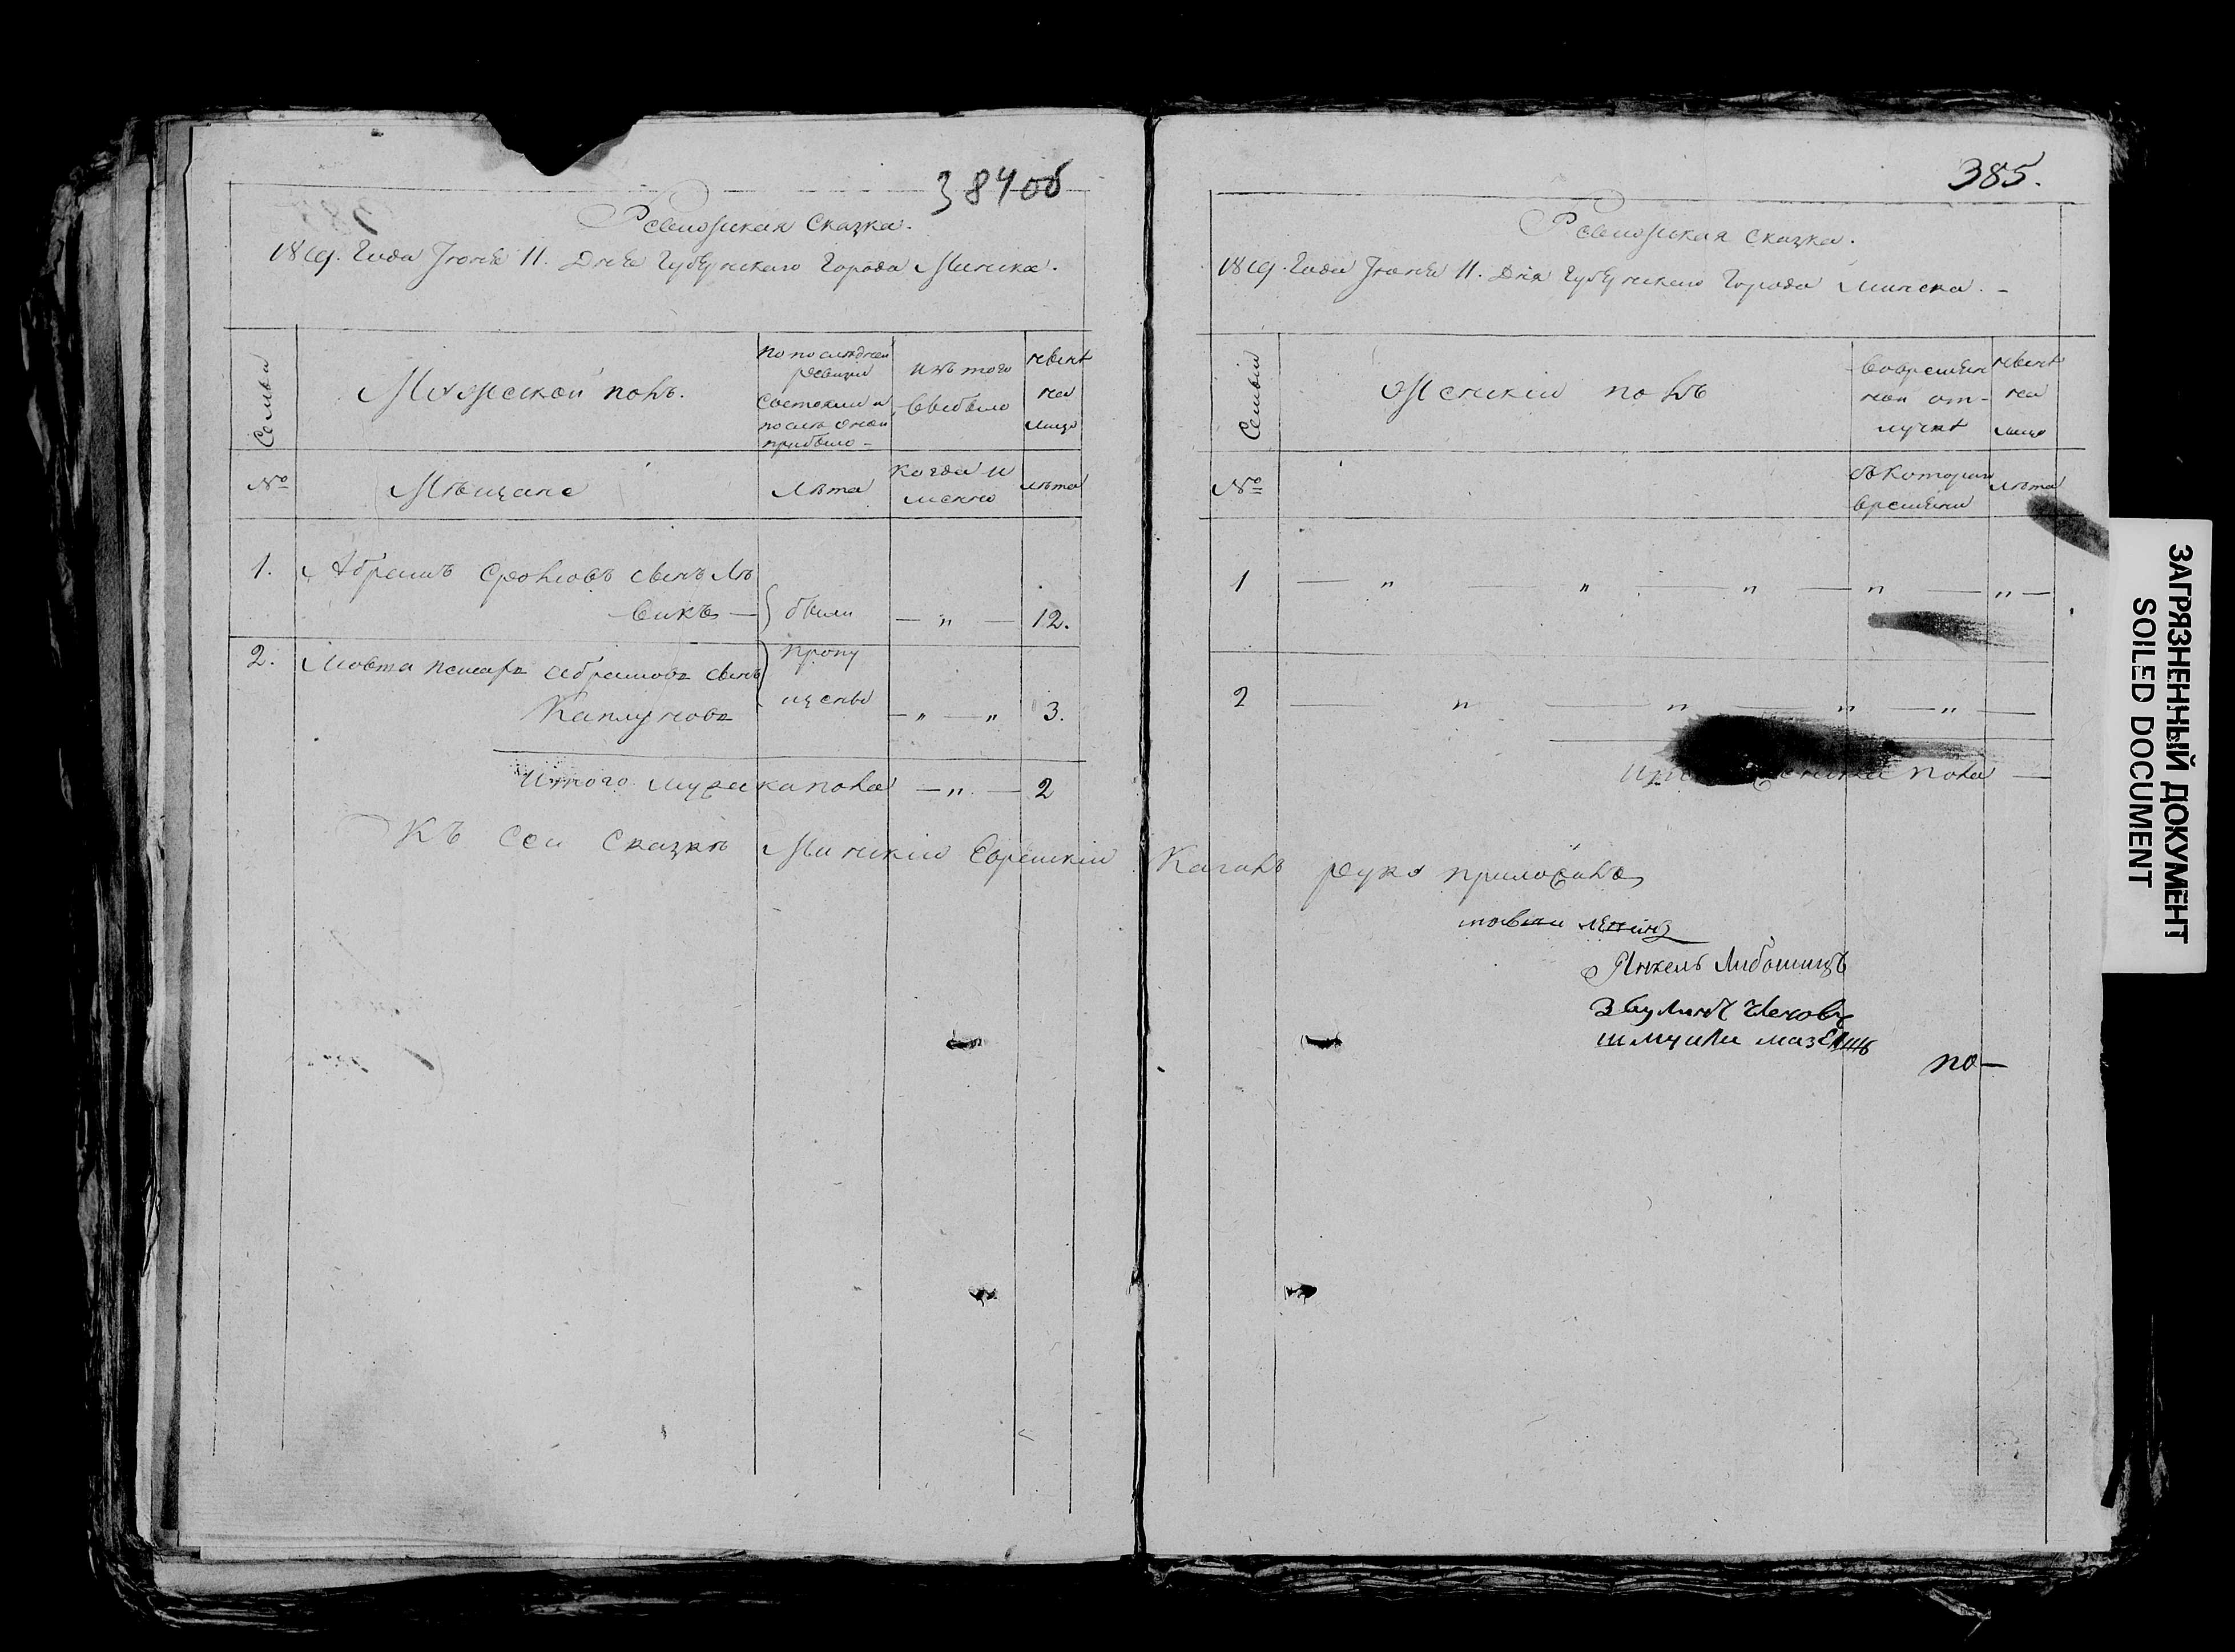 384об
Ревижская Сказка.
1819. Года Июня 11. Дня Губернскаго Города Минска.
Семьи
Мужеской полъ.
по последней ревизии состояло и после оной прибыло
изъ того выбыло
ныне на лицо
№
Мещане
Лета
когда именно
лета
1.
Абрамъ сынъ Ле
викъ
были
— " —
12.
2.
Мовша Абрамовъ сынъ
пропу
Каплуновъ
щены
— " — "
3.
Итого мужеска пола — " — 2
Къ сей сказке Минский Еврейский Кагалъ руку приложилъ
385.
Ревижская Сказка.
1819. Года Июня 11. Дня Губернскаго Города Минска. —
Семьи
Женский полъ
во временной отлучке
ныне на лицо
№
съ котораго времени
лета
1 — " — " — " — " — " —
2 — " — " — " — " —
пола —
Янкель Либошицъ
по—
ЗАГРЯЗНЕННЫЙ ДОКУМЕНТ
SOILED DOCUMENT